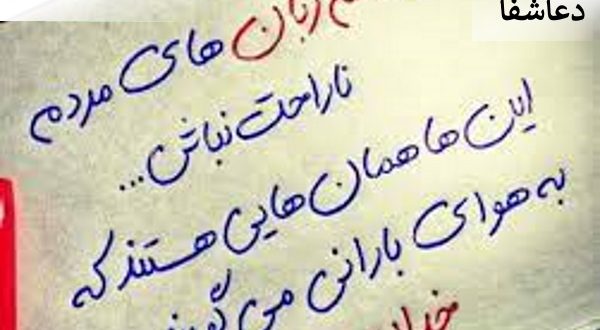 دعاشفا
زبان های مردم
ناراحت نباش...
این ها همان هایی هستند که
به هوای بارانی می